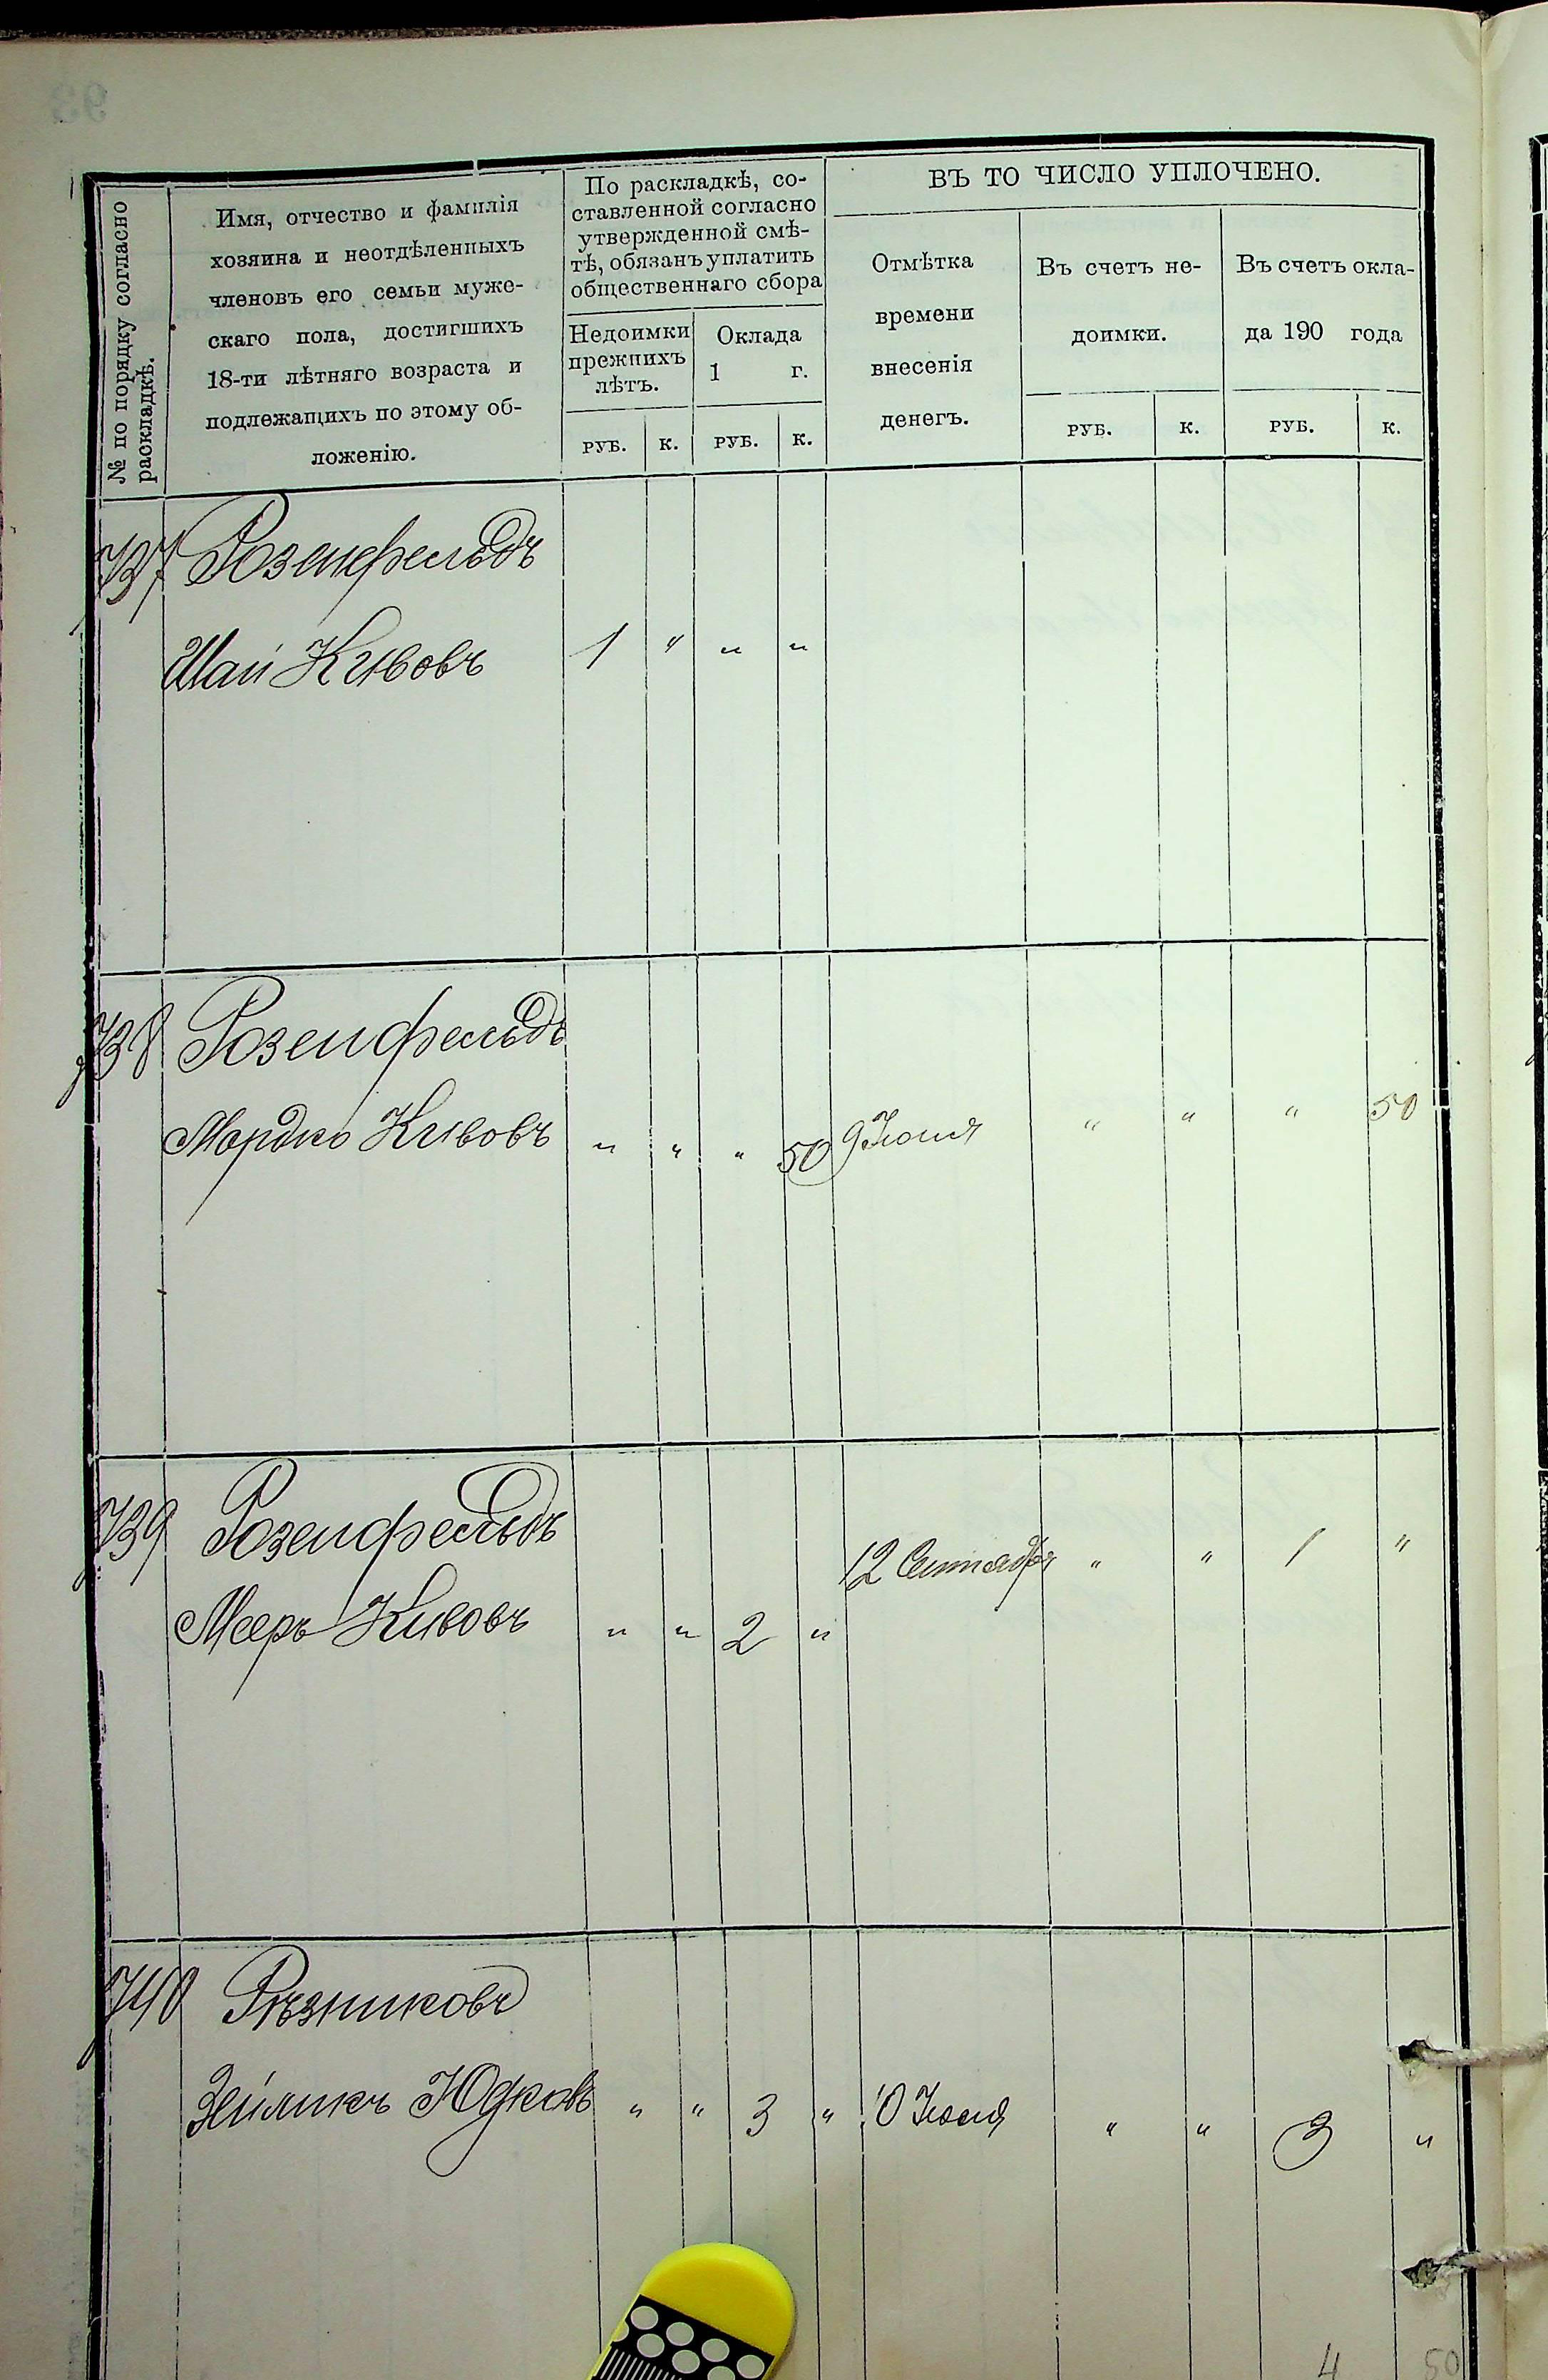 № по порядку согласно
раскладкѣ.
Имя, отчество и фамилія
хозяина и неотдѣленныхъ
членовъ его семьи муже-
скаго пола, достигшихъ
18-ти лѣтняго возраста и
подлежащихъ по этому об-
ложенію.
По раскладкѣ, со-
ставленной согласно
утвержденной смѣ-
тѣ, обязанъ уплатить
общественнаго сбора
Недоимки
прежнихъ
лѣтъ.
Оклада
1 г.
РУБ. К. РУБ. К.
ВЪ ТО ЧИСЛО УПЛОЧЕНО.
Отмѣтка
времени
внесенія
денегъ.
Въ счетъ не-
доимки.
Въ счетъ окла-
да 190 года
РУБ. К. РУБ. К.
737 Розенфельдъ
Шай Кивовъ 1 " " "
738 Розенфельдъ
Мордко Кивовъ " " " 50 9 Июня " " " 50
739 Розенфельдъ
12 Сентября " " 1 "
Мееръ Кивовъ " " 2 "
740 Рѣзниковъ
Зейликъ Юдковъ " " 3 " 10 Июня " " 3 "
4 50
93